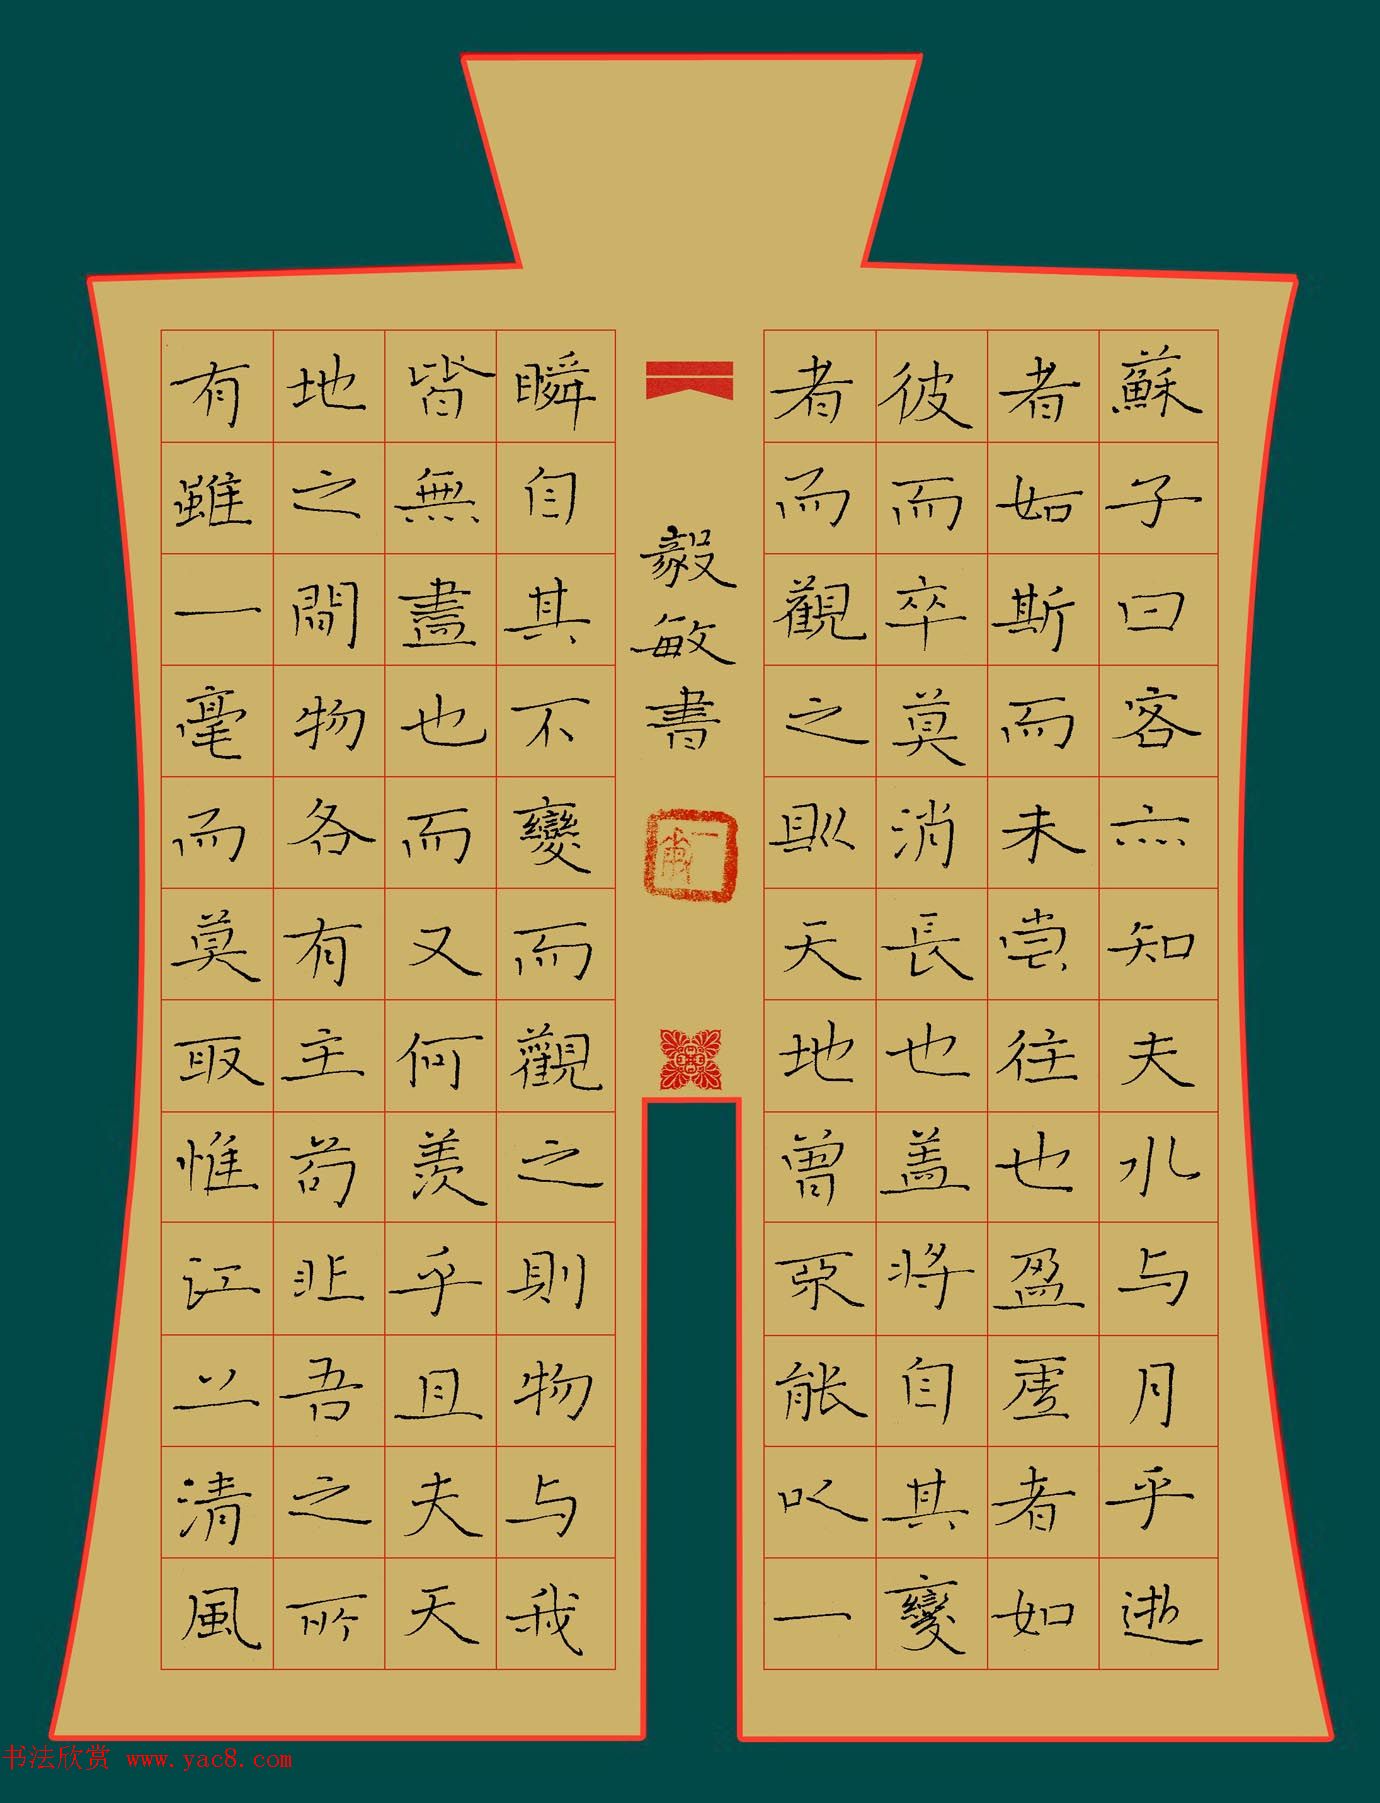 蘇子曰客亦知夫水与月乎逝
者如斯而未嘗往也盈虛者如
彼而卒莫消長也盖將自其變
者而觀之則天地曾不能以一
瞬自其不變而觀之則物与我
皆無盡也而又何羨乎且夫天
地之間物各有主苟非吾之所
有雖一毫而莫取惟江上清風
毅敏書
书法欣赏 www.yac8.com